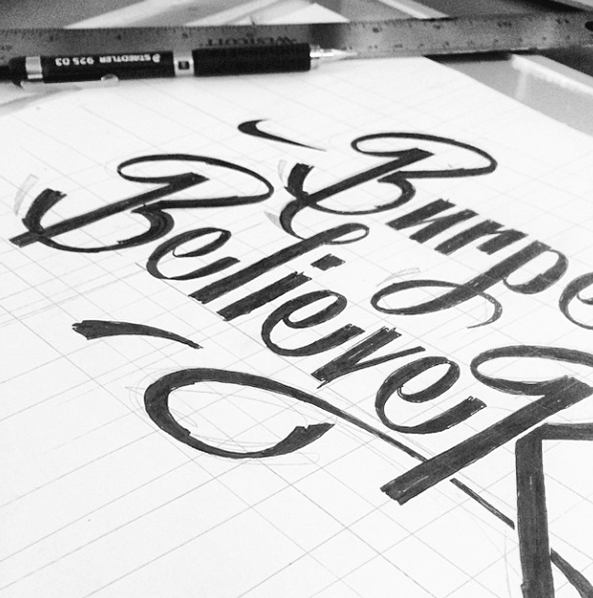 WESTCOTT
STAEDTLER 925 03
Burpe
Believe